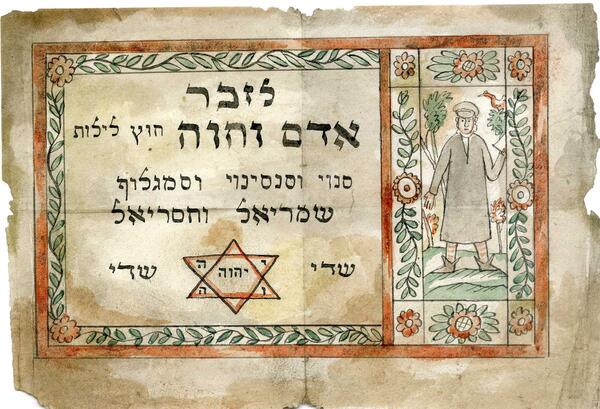 לזכר
אדם וחוה חוץ לילות
סנוי וסנסינוי וסמגלוף
שמריאל וחסדיאל
י ה
שדי יהוה שדי
ו ה